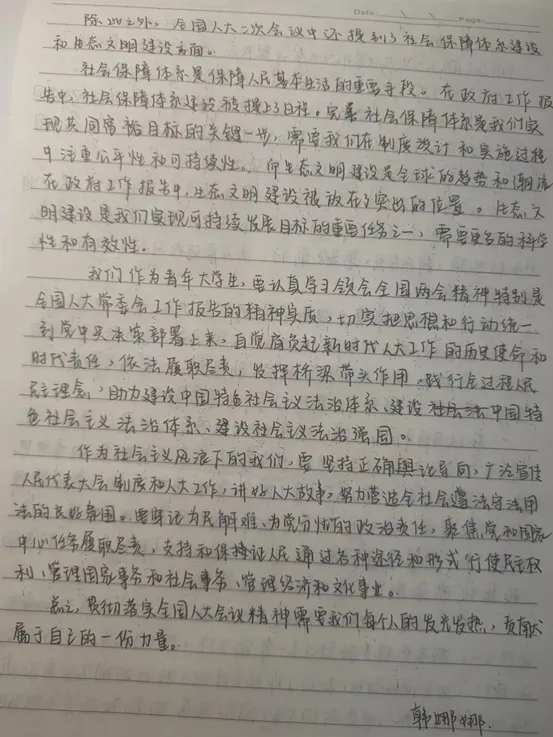 Date: Page:
除此之外,全国人大二次会议中还提到了社会保障体系建设
和生态文明建设方面。
社会保障体系是保障人民基本生活的重要手段。在政府工作报
告中,社会保障体系建设被提上了日程。完善社会保障体系是我们实
现共同富裕目标的关键一步,需要我们在制度设计和实施过程
中注重公平性和可持续性。而生态文明建设是全球的趋势和潮流
在政府工作报告中,生态文明建设被放在了突出的位置。生态文
明建设是我们实现可持续发展目标的重要任务之一,需要更多的科学
性和有效性。
我们作为青年大学生,要认真学习领会全国两会精神特别是
全国人大常委会工作报告的精神实质,切实把思想和行动统一
到党中央决策部署上来,自觉肩负起新时代人大工作的历史使命和
时代责任,依法履职尽责,发挥桥梁带头作用,践行全过程人民
民主理念,助力建设中国特色社会主义法治体系、建设社会法中国特
色社会主义法治体系、建设社会主义法治强国。
作为社会主义风流下的我们,要坚持正确舆论导向,广泛宣传
人民代表大会制度和人大工作,讲好人大故事,努力营造全社会遵法守法用
法的良好氛围。要牢记为民解难、为党分忧的政治责任,聚焦党和国家
中心任务履职尽责,支持和保持证人民通过各种途径和形式行使民主权
利、管理国家事务和社会事务、管理经济和文化事业。
总之,贯彻落实全国人大会议精神需要我们每个人的发光发热,贡献
属于自己的一份力量。
韩娜娜.